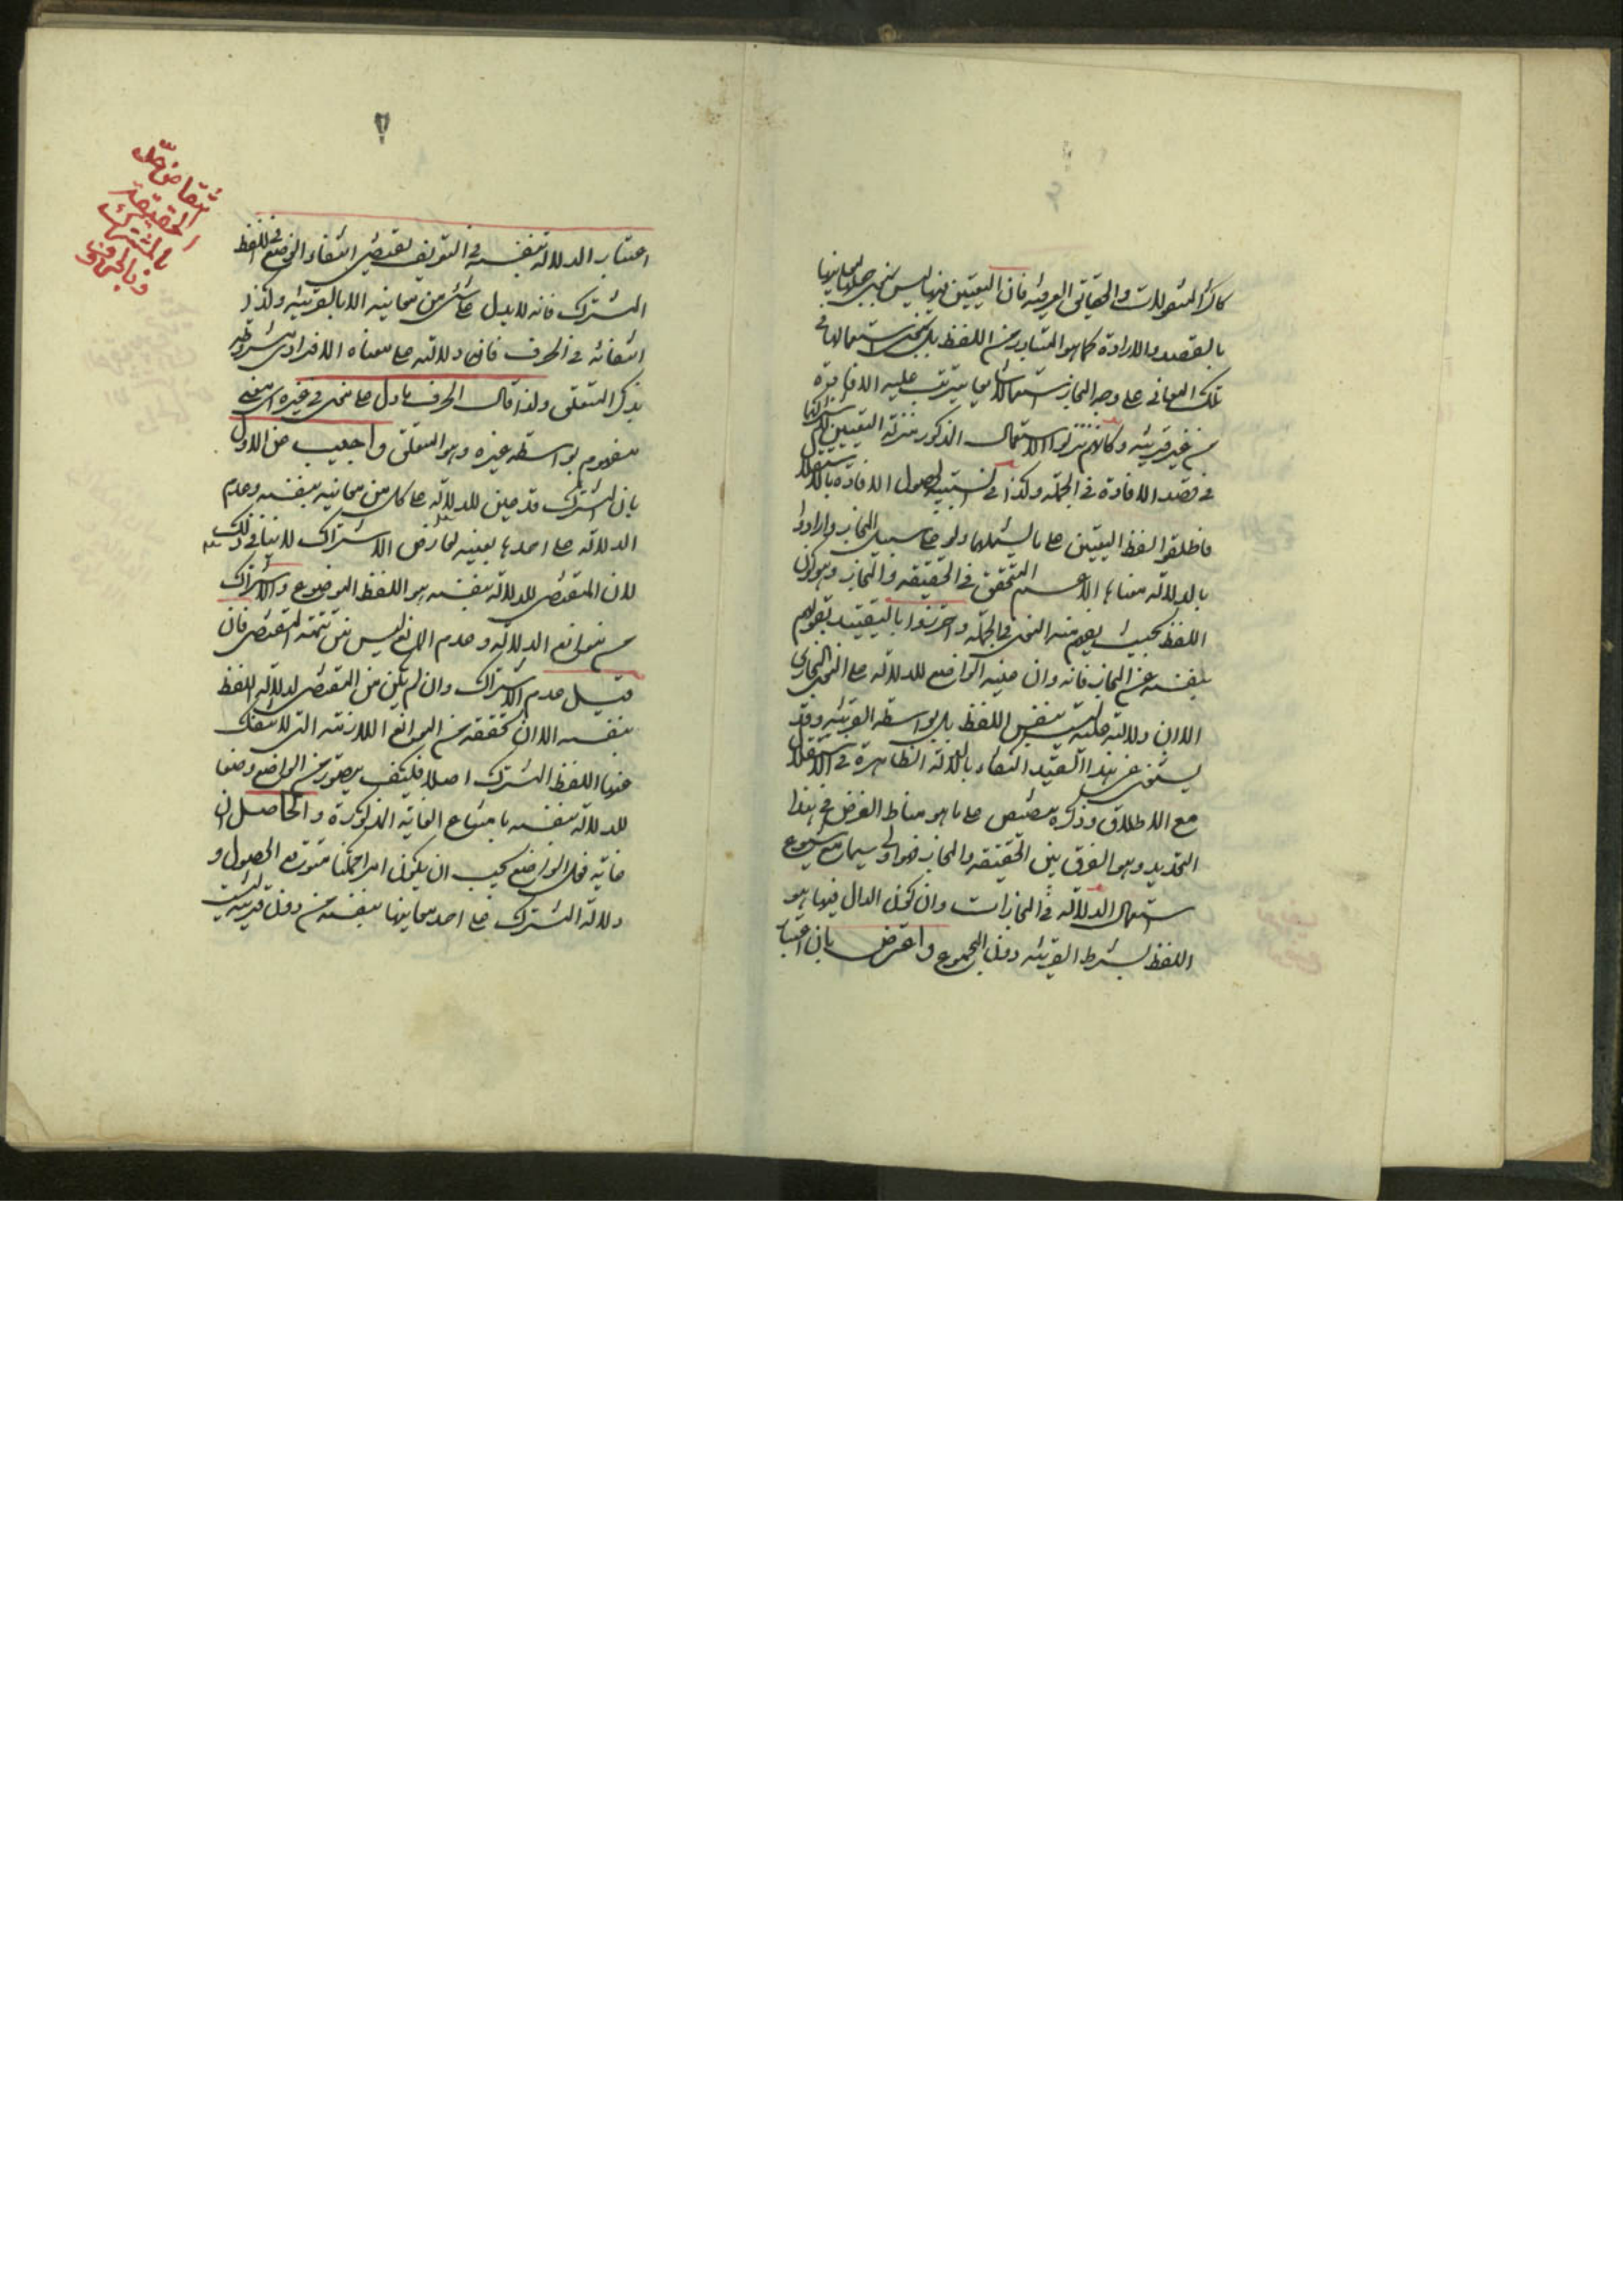 كاكثر المنقولات والحقايق العرفيه فان التعيين فيها ليس بمعنى جعلها بازائها
بالقصد والارادة كما هو المتبادر من اللفظ بل بمعنى استعمالها في
تلك المعاني على وجه المجاز استعمالا شايعا يترتب عليه الافادة
من غير قرينه وكانهم نزلوا الاستعمال المذكور منزلة التعيين
في قصد الافادة في الجملة وكذا في السببيه لحصول الافادة بالاستقلال
فاطلقوا لفظ التعيين على ما يشملهما ولو على سبيل المجاز وارادوا
بالدلالة معناها الاعم المتحقق في الحقيقه والمجاز وهو كون
اللفظ بحيث يفهم منه المعنى في الجملة واحترزوا بالتقييد بقولهم
بنفسه عن المجاز فانه وان عينه الواضع للدلالة على المعنى المجازي
الا ان دلالته عليه ليست بنفس اللفظ بل بواسطه القرينه وقد
يستغنى عن هذا القيد اكتفاء بالدلالة الظاهرة في الاستقلال
مع الاطلاق وذكره تنصيص على ما هو مناط الغرض في هذا
التحديد وهو الفرق بين الحقيقه والمجاز فهو اولى سيما مع شيوع
استعمال الدلالة في المجازات وان كون الدال فيها هو
اللفظ بشرط القرينه دون المجموع واعترض بان اعتبار
٢
انتقاض حد
الحقيقة
بالمشترك
وبالحروف
اعتبار الدلالة بنفسه في التعريف يقتضي انتفاء الوضع في اللفظ
المشترك فانه لا يدل على شئ من معانيه الا بالقرينه وكذا
انتفائه في الحرف فان دلالته على معناه الافرادي مشروطه
بذكر المتعلق ولذا قال الحرف ما دل على معنى في غيره اي معنى
مفهوم بواسطه غيره وهو المتعلق واجيب عن الاول
بان المشترك قد عين للدلالة على كل من معانيه بنفسه وعدم
الدلالة على احدها بعينه لعارض الاشتراك لا ينافي ذلك
لان المقتضي للدلالة بنفسه هو اللفظ الموضوع والاشتراك
من موانع الدلالة وعدم المانع ليس من تتمة المقتضي فان
قيل عدم الاشتراك وان لم يكن من المقتضي لدلالة اللفظ
بنفسه الا ان تحققه من الموانع اللازمة التي لا تنفك
عنها اللفظ المشترك اصلا فكيف يتصور من الواضع وضعها
للدلالة بنفسه مع امتناع الغاية المذكورة والحاصل ان
غاية فعل الواضع يجب ان يكون امرا ممكنا متوقع الحصول و
دلالة المشترك على احد معانيها بنفسه من دون قرينه ليست